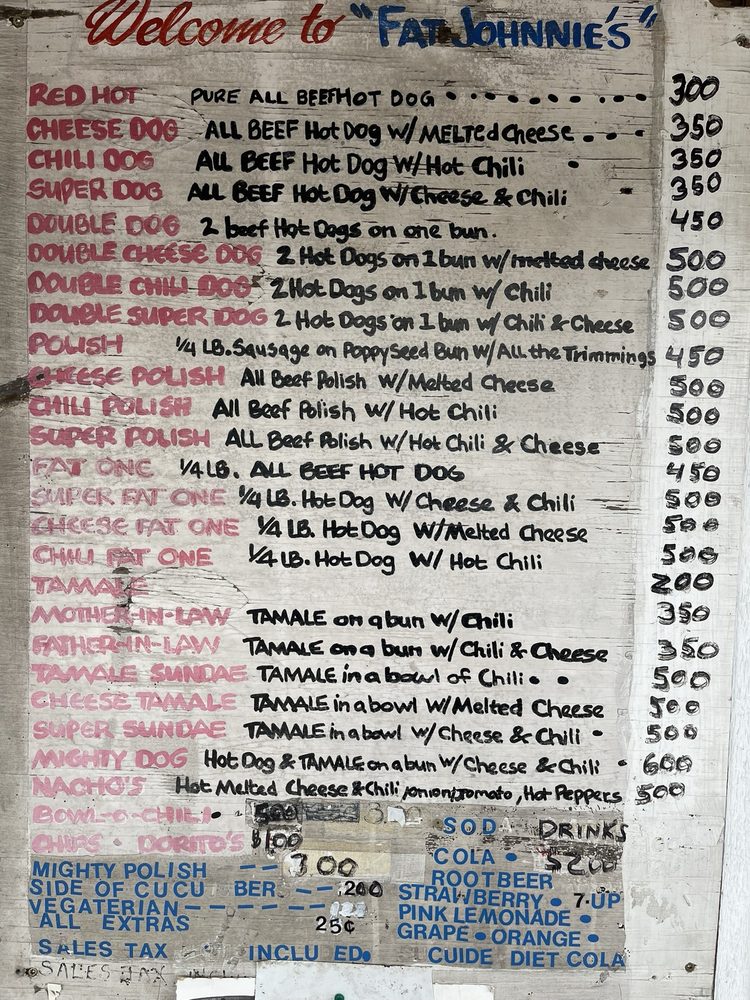 Welcome to "FAT JOHNNIE'S"
RED HOT PURE ALL BEEF HOT DOG 300
CHEESE DOG ALL BEEF Hot Dog W/MELTed Cheese 350
CHILI DOG ALL BEEF Hot Dog W/Hot Chili 350
SUPER DOG ALL BEEF Hot Dog W/Cheese & Chili 350
DOUBLE DOG 2 beef Hot Dogs on one bun. 450
DOUBLE CHEESE DOG 2 Hot Dogs on 1 bun w/melted cheese 500
DOUBLE CHILI DOG 2 Hot Dogs on 1 bun w/ Chili 500
DOUBLE SUPER DOG 2 Hot Dogs on 1 bun w/ Chili & Cheese 500
POLISH 1/4 LB. Sausage on Poppy Seed Bun W/All the Trimmings 450
CHEESE POLISH All Beef Polish W/Melted Cheese 500
CHILI POLISH All Beef Polish W/ Hot Chili 500
SUPER POLISH ALL Beef Polish W/Hot Chili & Cheese 500
FAT ONE 1/4 LB. ALL BEEF HOT DOG 450
SUPER FAT ONE 1/4 LB. Hot Dog W/Cheese & Chili 500
CHEESE FAT ONE 1/4 LB. Hot Dog W/Melted Cheese 500
CHILI FAT ONE 1/4 LB. Hot Dog W/ Hot Chili 500
TAMALE 200
MOTHER-IN-LAW TAMALE on a bun w/ Chili 350
FATHER-IN-LAW TAMALE on a bun w/ Chili & Cheese 350
TAMALE SUNDAE TAMALE in a bowl of Chili 500
CHEESE TAMALE TAMALE in a bowl w/Melted Cheese 500
SUPER SUNDAE TAMALE in a bowl w/Cheese & Chili 500
MIGHTY DOG Hot Dog & TAMALE on a bun w/Cheese & Chili 600
NACHO'S Hot Melted Cheese & Chili, onion, Tomato, Hot Peppers 500
BOWL-O-CHILI 500
CHIPS • DORITO'S $100
MIGHTY POLISH -- 700
SIDE OF CUCU BER -- 200
VEGATERIAN
ALL EXTRAS 25¢
SALES TAX INCLU ED.
SALES TAX
SOD DRINKS
COLA • $200
ROOTBEER
STRAWBERRY • 7-UP
PINK LEMONADE •
GRAPE • ORANGE •
CUIDE DIET COLA